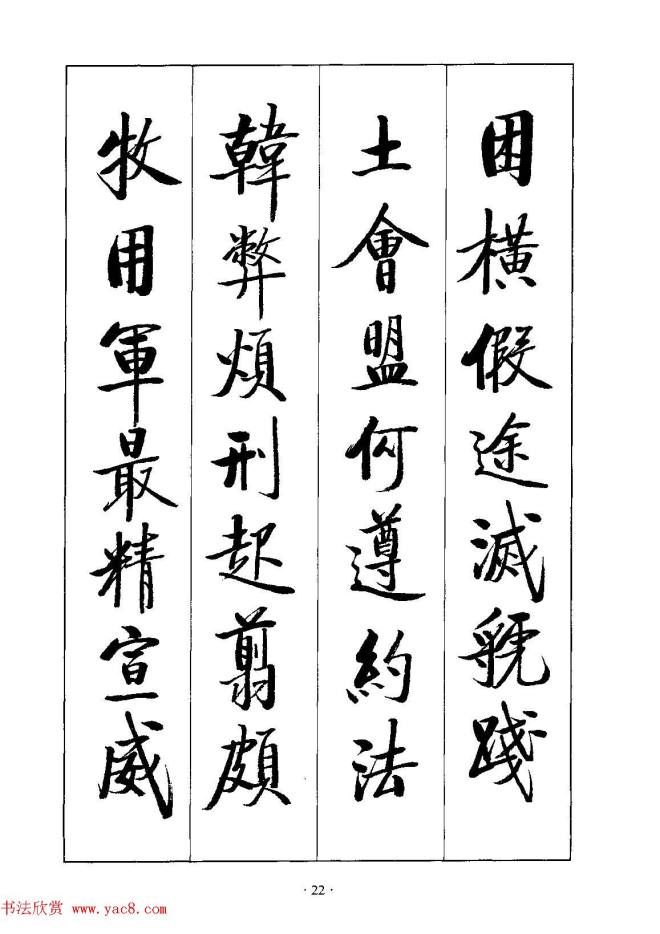 困橫假途滅虢踐
土會盟何遵約法
韓弊煩刑起翦頗
牧用軍最精宣威
· 22 ·
书法欣赏 www.yac8.com